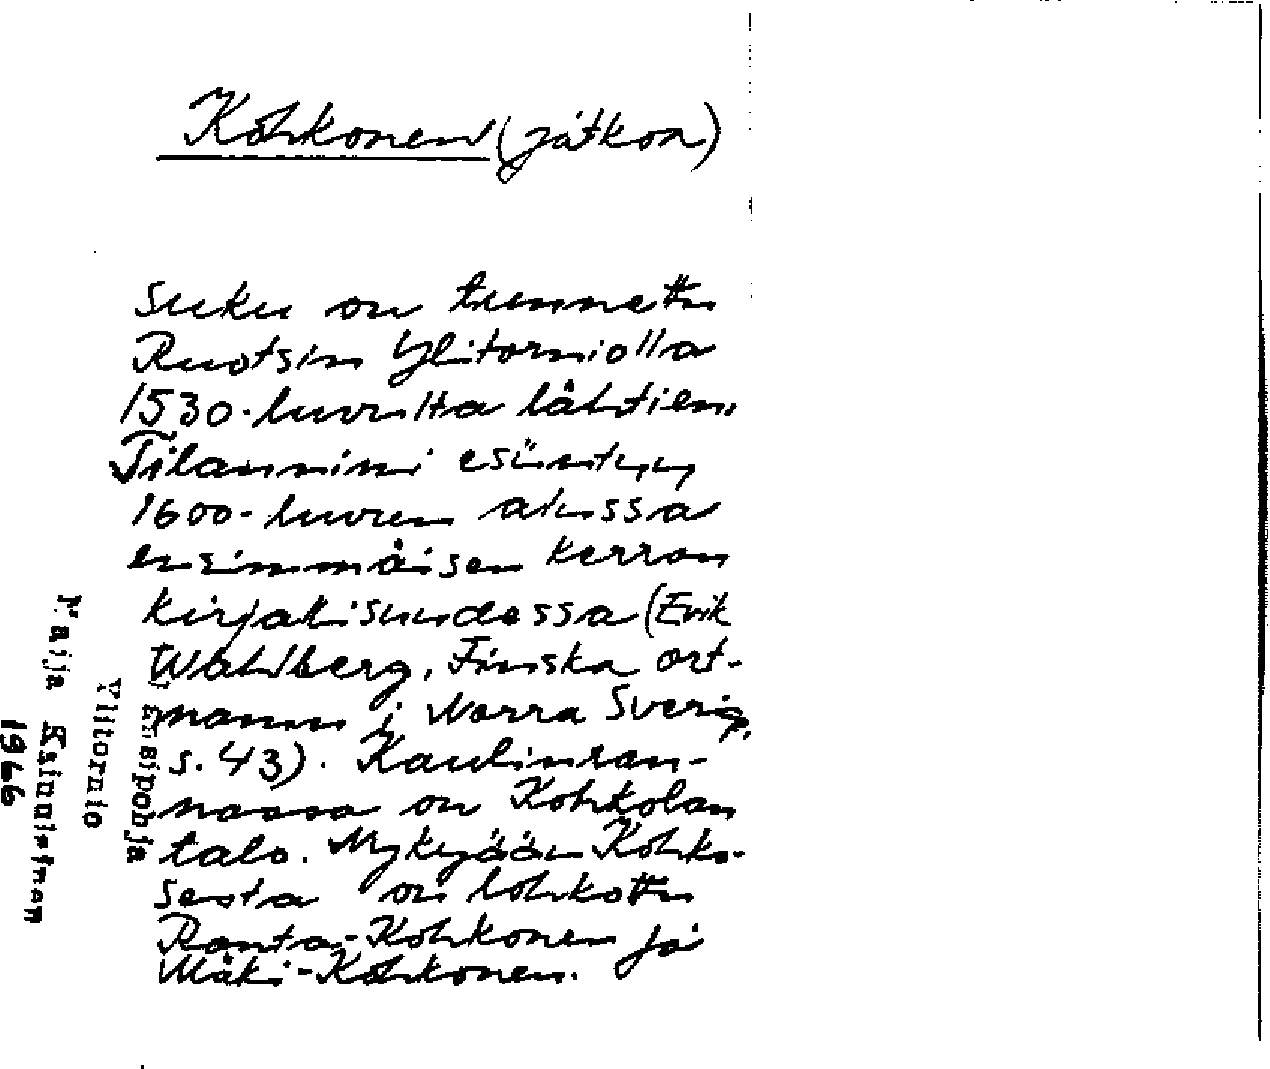 Kohkonen (jatkoa)
suku on tunnettu
Ruotsin Ylitorniolla
1530-luvulta lähtien.
Tilannimi esiintyy
1600-luvun alussa
ensimmäisen kerran
kirjallisuudessa (Erik
Wahlberg, Finska ort-
namn i Norra Sverige,
s. 43). Kaulinran-
nassa on Kohkolan
talo. Nykyään Kohko-
sesta on lohkottu
Ranta-Kohkonen ja
Mäki-Kohkonen.
Länsipohja
Ylitornio
Maija
1966